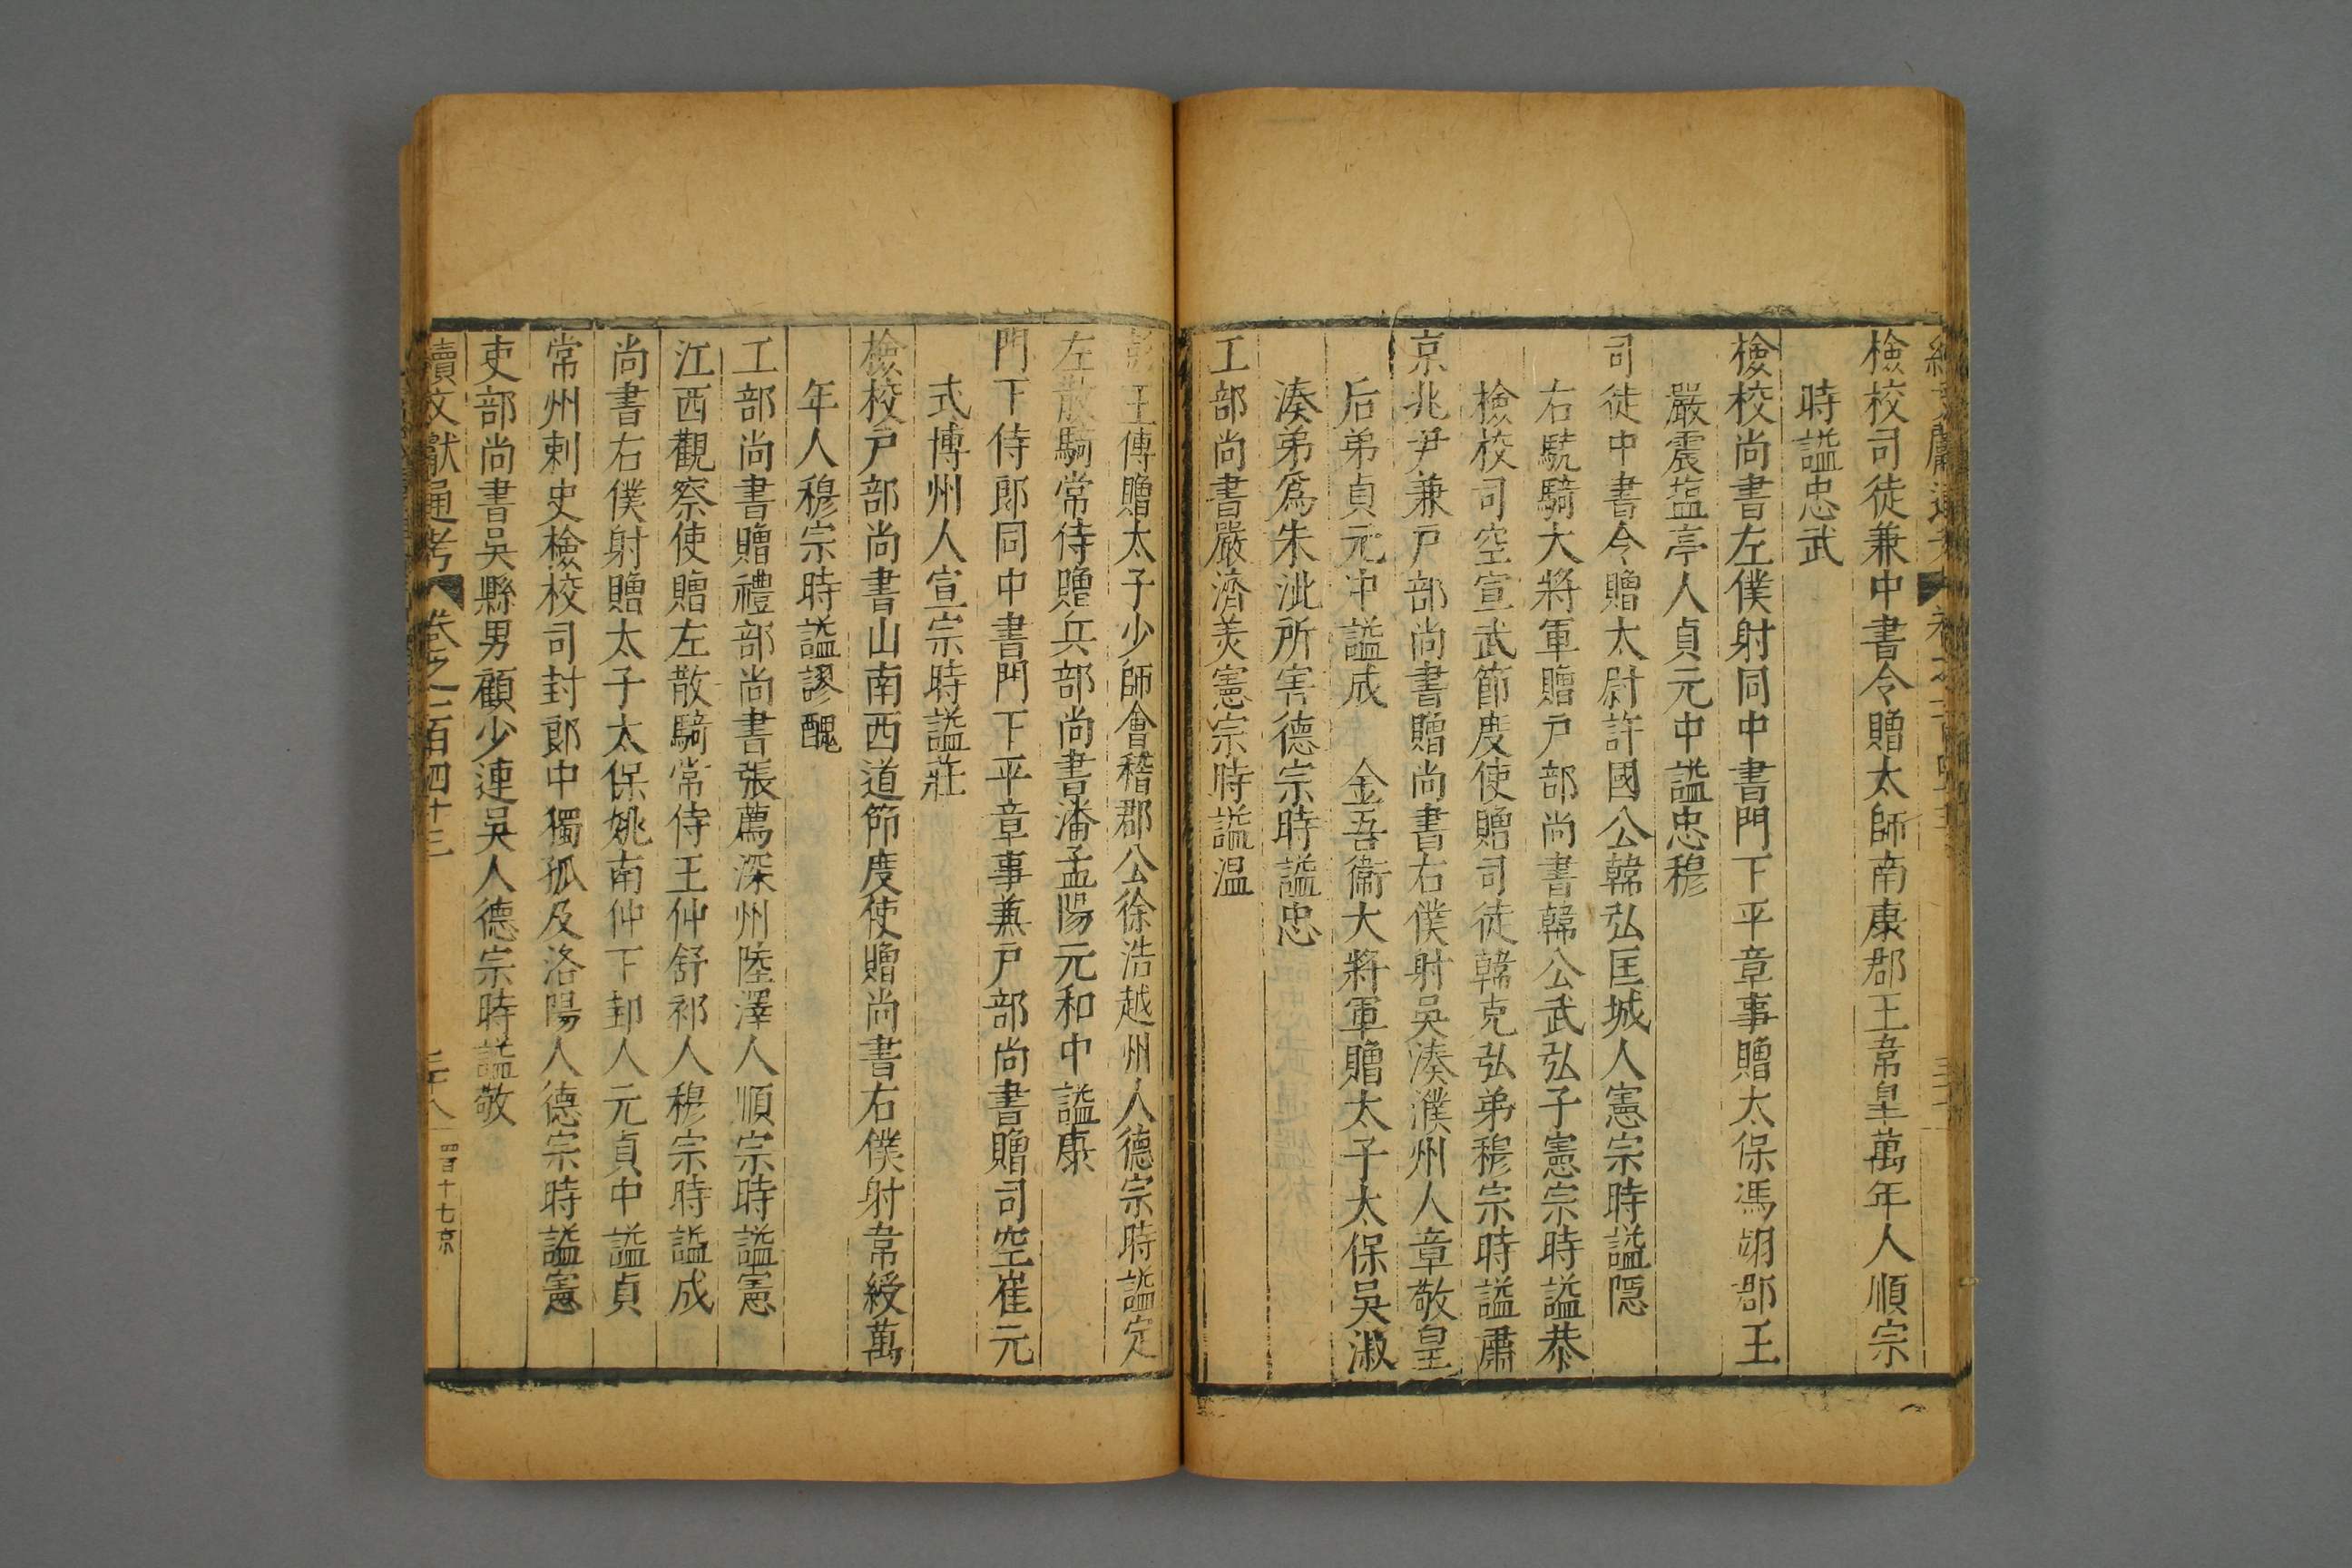 檢校司徒兼中書令贈太師南康郡王韋臯萬年人順宗
時謚忠武
檢校尚書左僕射同中書門下平章事贈太保馮翊郡王
嚴震塩亭人貞元中謚忠穆
司徒中書令贈太尉許國公韓弘匡城人憲宗時謚隠
右驍騎大將軍贈戸部尚書韓公武弘子憲宗時謚恭
檢校司空宣武節度使贈司徒韓克弘弟穆宗時謚肅
京兆尹兼戸部尚書贈尚書右僕射吳湊濮州人章敬皇
后弟貞元中謚成 金吾衞大將軍贈太子太保吳漵
湊弟爲朱泚所害德宗時謚忠
工部尚書嚴濟美憲宗時謚温
彭王傅贈太子少師會稽郡公徐浩越州人德宗時謚定
左散騎常侍贈兵部尚書潘孟陽元和中謚康
門下侍郎同中書門下平章事兼戸部尚書贈司空崔元
式博州人宣宗時謚莊
檢校戸部尚書山南西道節度使贈尚書右僕射韋綬萬
年人穆宗時謚謬醜
工部尚書贈禮部尚書張薦深州陸澤人順宗時謚憲
江西觀察使贈左散騎常侍王仲舒祁人穆宗時謚成
尚書右僕射贈太子太保姚南仲下邽人元貞中謚貞
常州刺史檢校司封郎中獨孤及洛陽人德宗時謚憲
吏部尚書吳縣男顧少連吳人德宗時謚敬
續文獻通考 卷之一百四十三 三十八 四百十七京